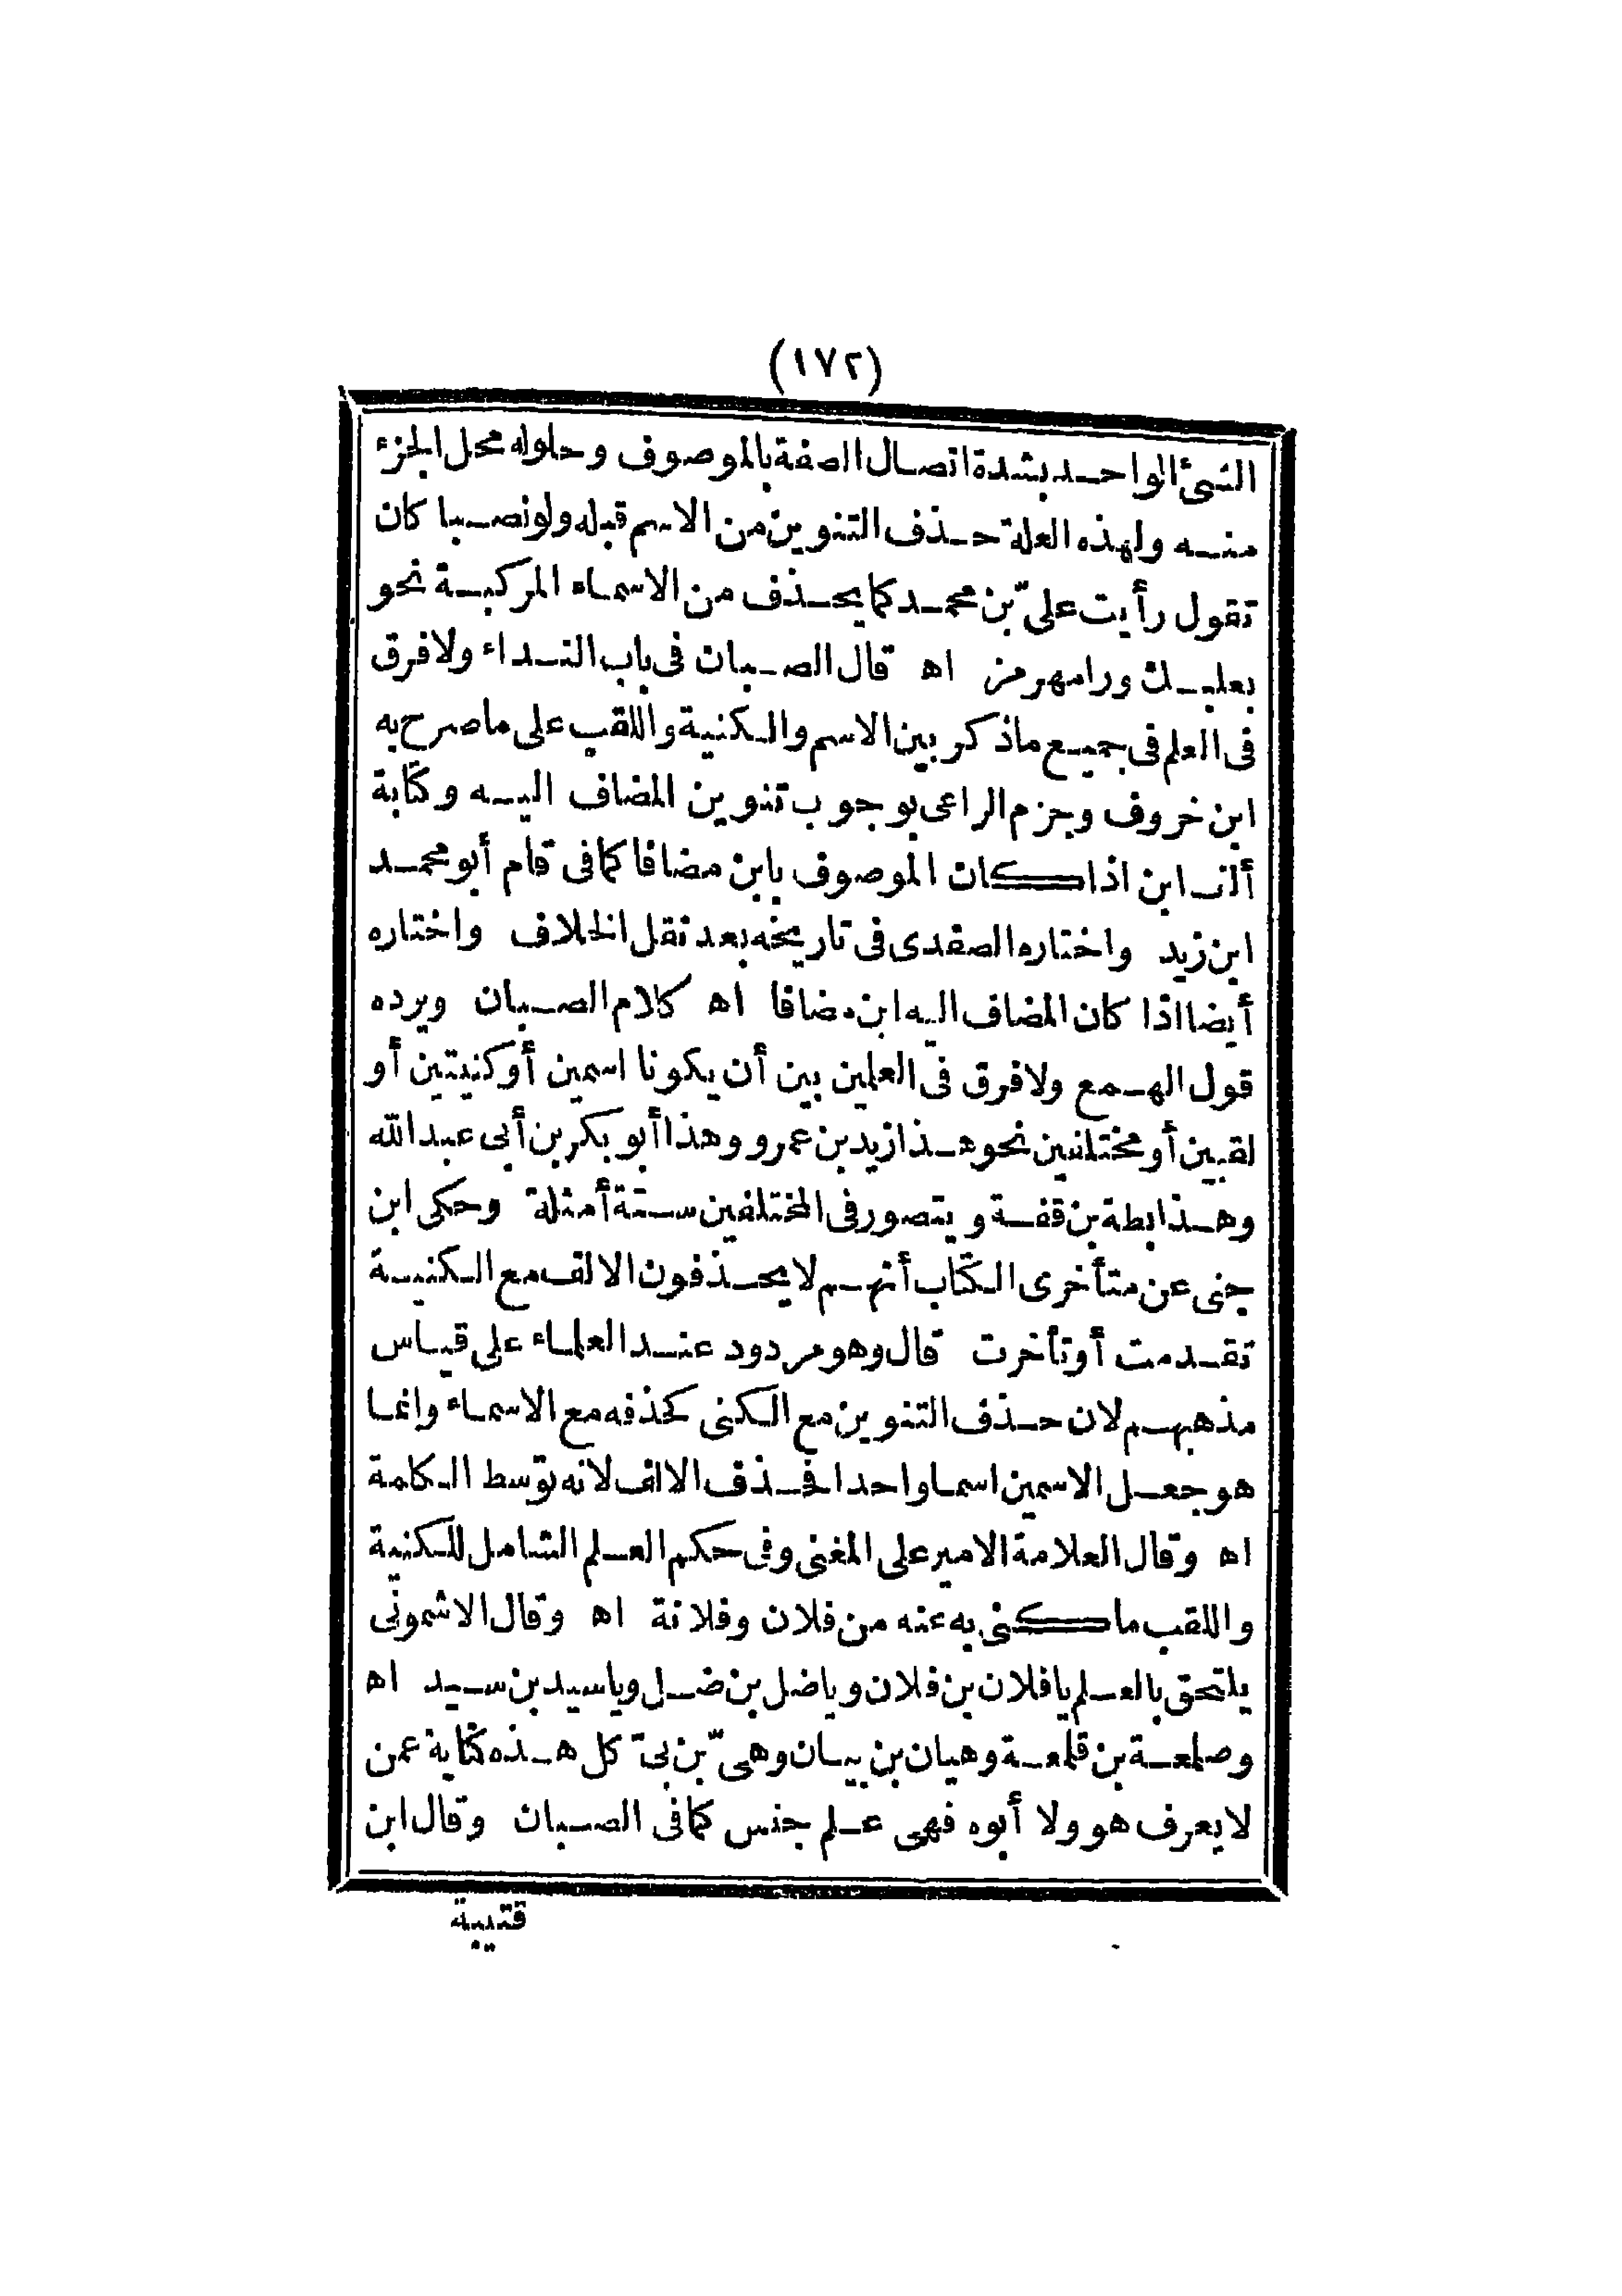 (١٧٢)
الشئ الواحد بشدة اتصال الصفة بالموصوف وحلوله محل الجزء
منه ولهذه العلة حذف التنوين من الاسم قبله ولو نصبا كان
تقول رأيت علىّ بن محمد كما يحذف من الاسماء المركبة نحو
بعلبك ورامهرمز اه قال الصبان فى باب النداء ولا فرق
فى العلم فى جميع ماذكر بين الاسم والكنية واللقب على ماصرح به
ابن خروف وجزم الراعى بوجوب تنوين المضاف اليه وكتابة
ألف ابن اذا كان الموصوف بابن مضافا كما فى قام أبو محمد
ابن زيد واختاره الصفدى فى تاريخه بعد نقل الخلاف واختاره
أيضا اذا كان المضاف اليه ابن مضافا اه كلام الصبان ويرده
قول الهمع ولا فرق فى العلين بين أن يكونا اسمين أو كنيتين أو
لقبين أو مختلفين نحو هذا زيد بن عمرو وهذا أبو بكر بن أبى عبد الله
وهذا بطة بن قفة ويتصور فى المختلفين ستة أمثلة وحكى ابن
جنى عن متأخرى الكتاب أنهم لا يحذفون الالف مع الكنية
تقدمت أو تأخرت قال وهو مردود عند العلماء على قياس
مذهبهم لان حذف التنوين مع الكنى كحذفه مع الاسماء وانما
هو جعل الاسمين اسما واحدا فحذف الالف لانه توسط الكلمة
اه وقال العلامة الامير على المغنى وفى حكم العلم الشامل للكنية
واللقب ما كنى به عنه من فلان وفلانة اه وقال الاشمونى
يلتحق بالعلم يا فلان بن فلان ويا ضل بن ضل ويا سيد بن سيد اه
وصلعة بن قلعة وهيان بن بيان وهىّ بن بىّ كل هذه كناية عمن
لا يعرف هو ولا أبوه فهى علم جنس كما فى الصبان وقال ابن
قتيبة